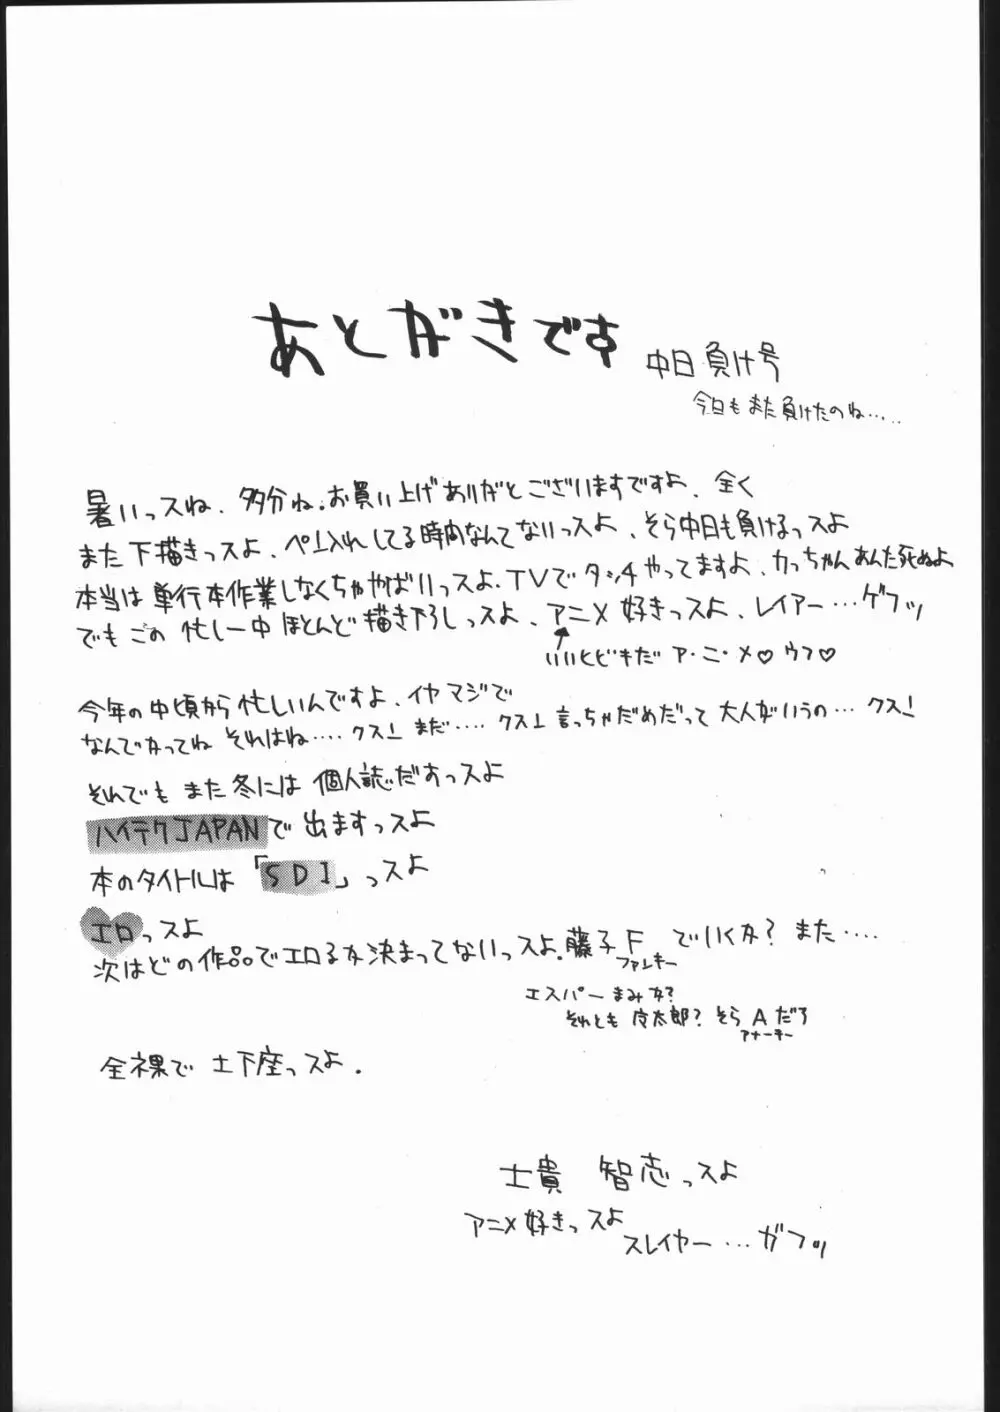 あとがきです
中日負け号
今日もまた負けたのね‥‥‥
暑いっスね、多分ね。お買い上げありがとございますですよ、全く
また下描きっスよ、ペン入れしてる時間なんてないっスよ、そら中日も負けるっスよ
本当は単行本作業しなくちゃやばいっスよ、TVでタッチやってますよ、カっちゃんあんた死ぬよ
でもこの忙しー中ほとんど描き下ろしっスよ、アニメ好きっスよ、レイアー…ゲフッ
いいとどキだ ア・ニ・メ♡ ウフ♡
今年の中頃から忙しいんですよ、イヤマジで
なんでかってね それはね‥‥ クスッ まだ‥‥ クスッ 言っちゃだめだって大人がいうの… クスッ
それでもまた冬には個人誌だすっスよ
ハイテクJAPANで出ますっスよ
本のタイトルは「SDI」っスよ
エロっスよ
次はどの作品でエロるか決まってないっスよ。藤子Fでいくか? また‥‥
ファンキー
エスパーまみか?
それとも 太郎? そら Aだろ
アナーキー
全裸で土下座っスよ.
士貴 智志っスよ
アニメ好きっスよ
スレイヤー…ガフッ